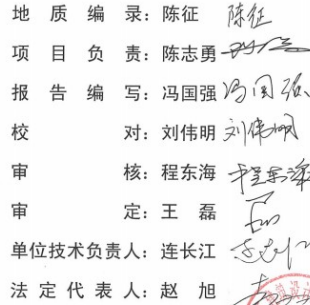 地质编录：陈征 陈征
项目负责：陈志勇
报告编写：冯国强 冯国强
校对：刘伟明 刘伟明
审核：程东海 程东海
审定：王磊
单位技术负责人：连长江
法定代表人：赵旭